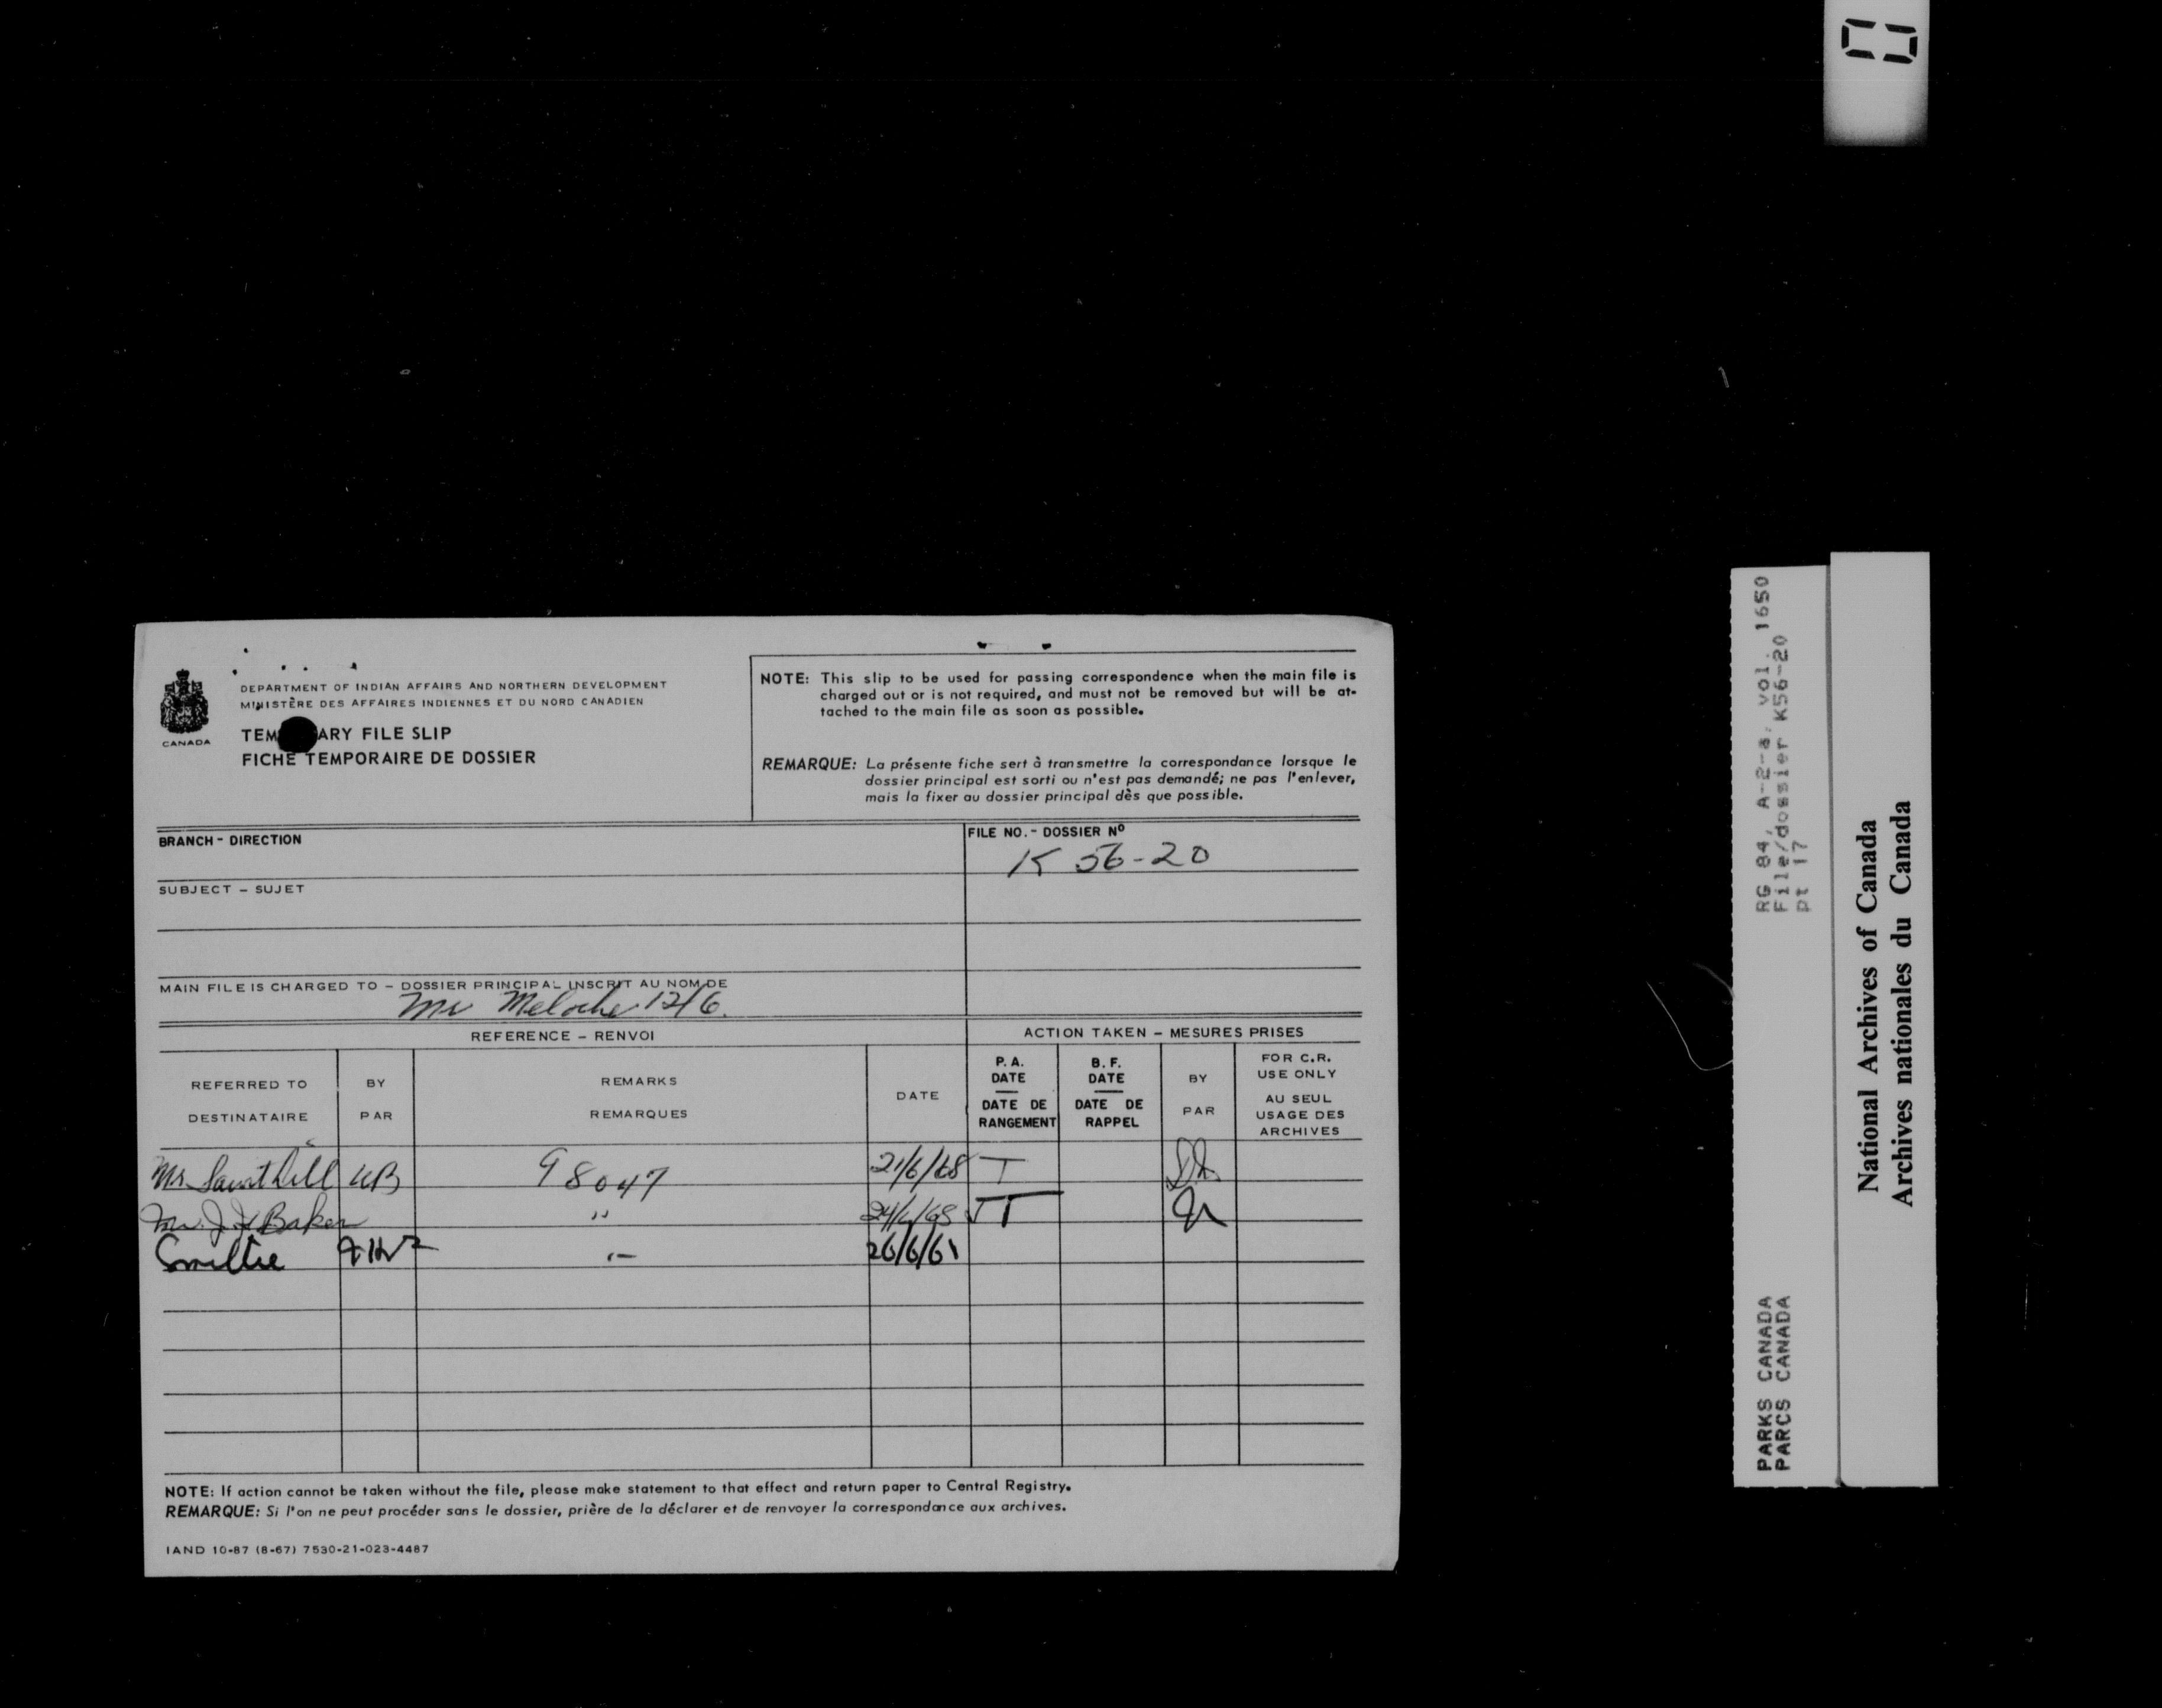 DEPARTMENT OF INDIAN AFFAIRS AND NORTHERN DEVELOPMENT
MINISTÈRE DES AFFAIRES INDIENNES ET DU NORD CANADIEN
CANADA
TEM ARY FILE SLIP
FICHE TEMPORAIRE DE DOSSIER
NOTE: This slip to be used for passing correspondence when the main file is
charged out or is not required, and must not be removed but will be at-
tached to the main file as soon as possible.
REMARQUE: La présente fiche sert à transmettre la correspondance lorsque le
dossier principal est sorti ou n'est pas demandé; ne pas l'enlever,
mais la fixer au dossier principal dès que possible.
BRANCH - DIRECTION
FILE NO. - DOSSIER Nº
K 56-20
SUBJECT - SUJET
MAIN FILE IS CHARGED TO - DOSSIER PRINCIPAL INSCRIT AU NOM DE
Mr Meloche 12/6.
REFERENCE - RENVOI
ACTION TAKEN - MESURES PRISES
REFERRED TO
DESTINATAIRE
BY
PAR
REMARKS
REMARQUES
DATE
P. A.
DATE
DATE DE
RANGEMENT
B. F.
DATE
DATE DE
RAPPEL
BY
PAR
FOR C.R.
USE ONLY
AU SEUL
USAGE DES
ARCHIVES
Mr. 98047 21/6/68 T
Mr. Baker " 24/6/68
26/6/68
NOTE: If action cannot be taken without the file, please make statement to that effect and return paper to Central Registry.
REMARQUE: Si l'on ne peut procéder sans le dossier, prière de la déclarer et de renvoyer la correspondance aux archives.
IAND 10-87 (8-67) 7530-21-023-4487
RG 84, A-2-a, vol. 1650
File/dossier K56-20
pt 17
PARKS CANADA
PARCS CANADA
National Archives of Canada
Archives nationales du Canada